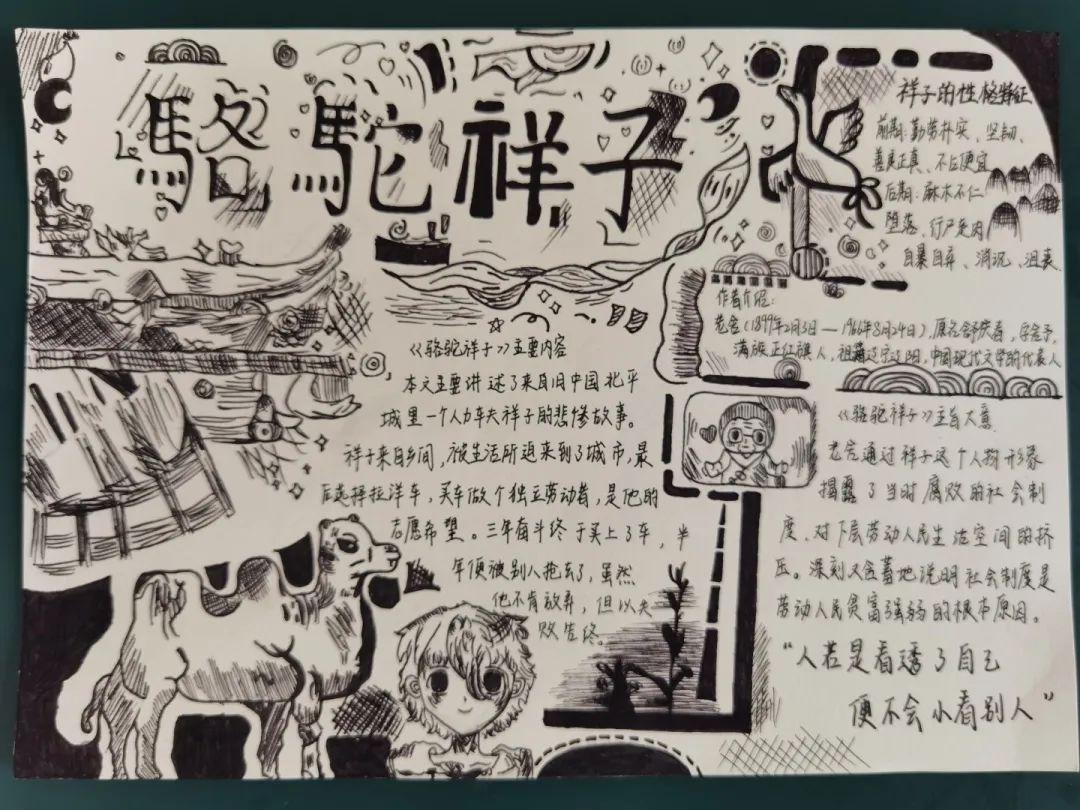 駱駝祥子
祥子的性格特征
前期:勤劳朴实、坚韧、
善良正真、不占便宜
后期:麻木不仁
堕落、行尸走肉
自暴自弃、消沉、沮丧
作者介绍:
老舍(1899年2月3日—1966年8月24日),原名舒庆春,字舍予,
满族正红旗人,祖籍辽宁辽阳,中国现代文学的代表人
《骆驼祥子》主要内容
本文主要讲述了来自旧中国北平
城里一个人力车夫祥子的悲惨故事。
祥子来自乡间,被生活所迫来到了城市,最
后选择拉洋车,买车做个独立劳动者,是他的
志愿希望。三年奋斗终于买上了车,半
年便被别人抢去了,虽然
他不肯放弃,但以失
败告终。
《骆驼祥子》主旨大意
老舍通过祥子这个人物形象
揭露了当时腐败的社会制
度、对下层劳动人民生活空间的挤
压。深刻又含蓄地说明社会制度是
劳动人民贫富强弱的根本原因。
“人若是看透了自己
便不会小看别人”